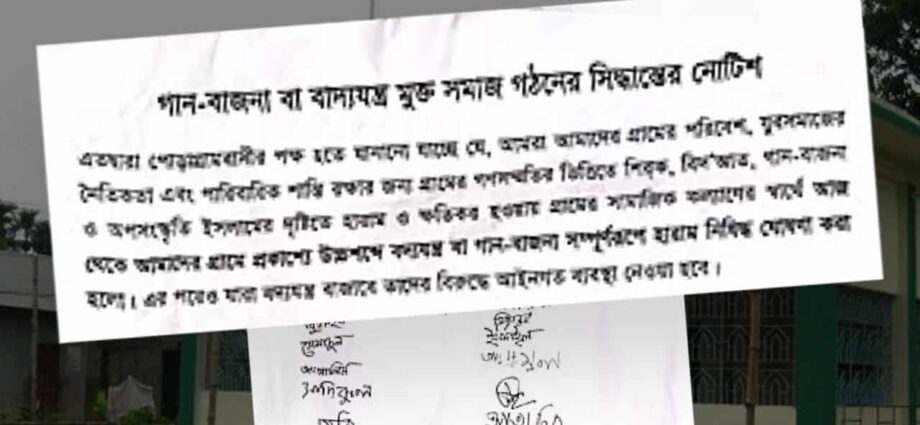 গান-বাজনা বা বাদ্যযন্ত্র মুক্ত সমাজ গঠনের সিদ্ধান্তের নোটিশ
এতদ্বারা পোড়াগ্রামবাসীর পক্ষ হতে জানানো যাচ্ছে যে, আমরা আমাদের গ্রামের পরিবেশ, যুবসমাজের
নৈতিকতা এবং পারিবারিক শান্তি রক্ষার জন্য গ্রামের গণসম্মতির ভিত্তিতে শিরক, বিদ'আত, গান-বাজনা
ও অপসংস্কৃতি ইসলামের দৃষ্টিতে হারাম ও ক্ষতিকর হওয়ায় গ্রামের সামাজিক কল্যাণের স্বার্থে আজ
থেকে আমাদের গ্রামে প্রকাশ্যে উচ্চশব্দে বদ্যযন্ত্র বা গান-বাজনা সম্পূর্ণরূপে হারাম নিষিদ্ধ ঘোষনা করা
হলো। এর পরেও যারা বদ্যযন্ত্র বাজাবে তাদের বিরুদ্ধে আইনগত ব্যবস্থা নেওয়া হবে।